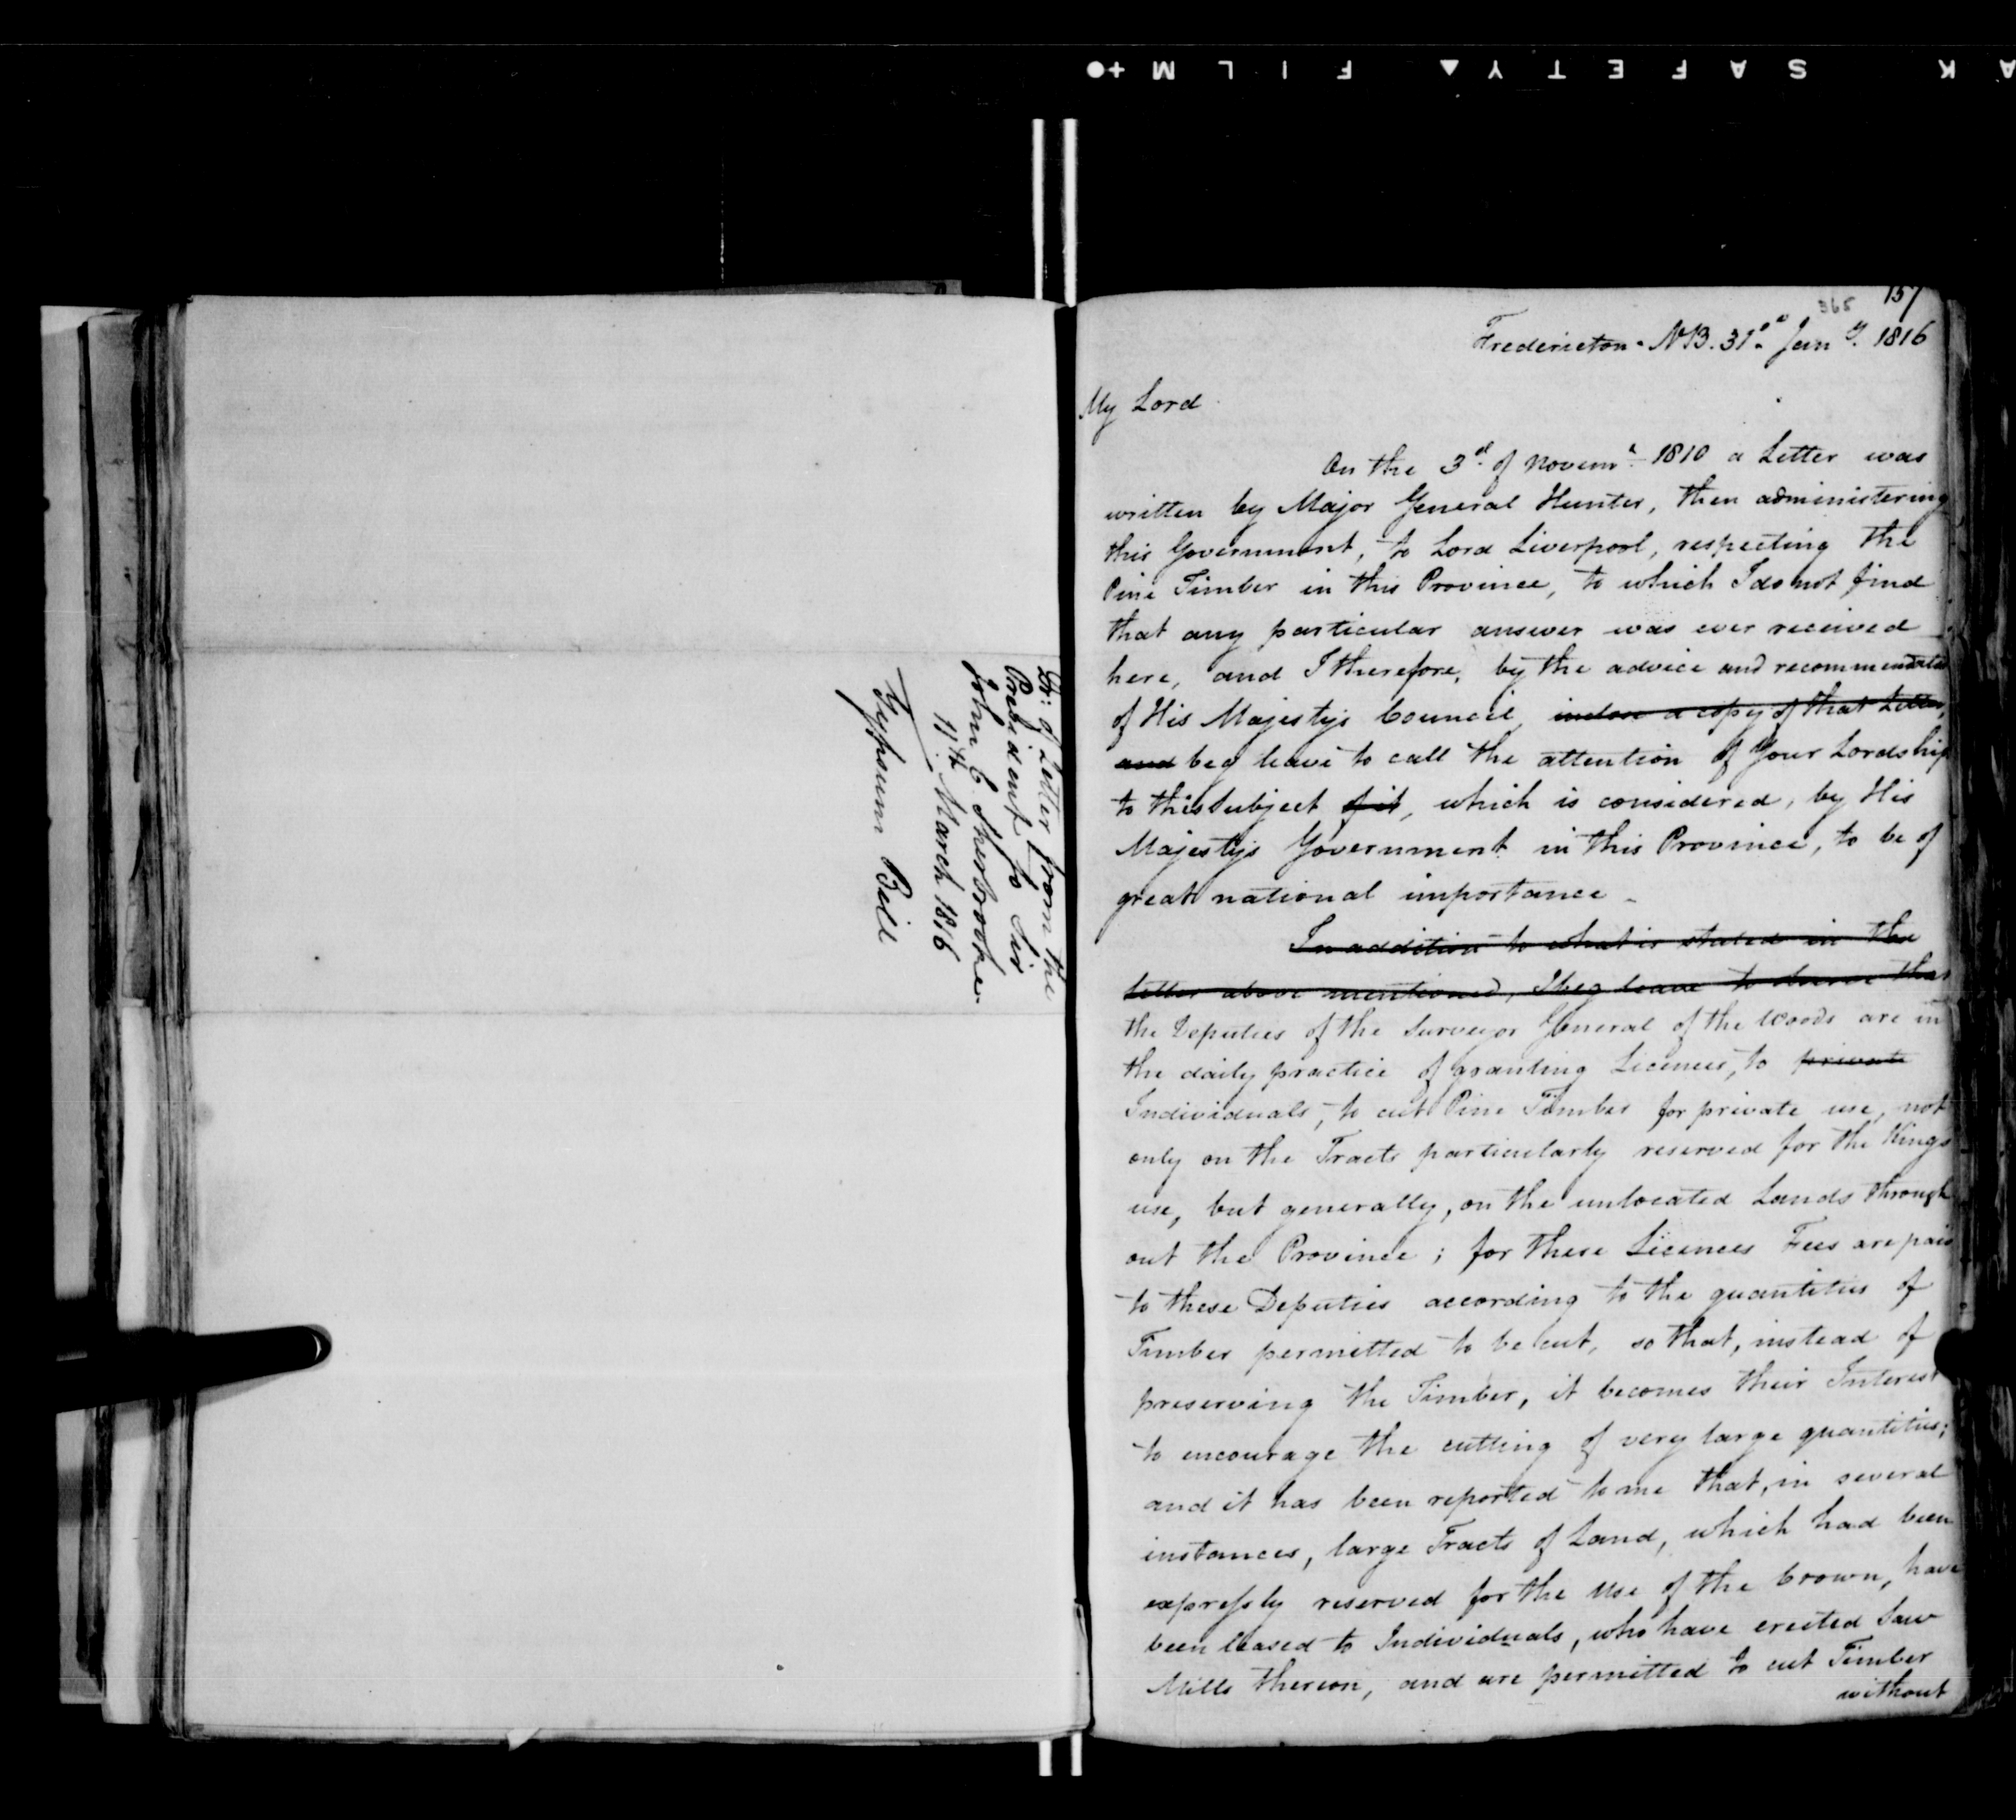 SAFETY▲ FILM +●
Dr: of Letter from the
President to Sir
John C Sherbrooke.
11th March 1816
Gypsum Bill
157
365
Fredericton. NB. 31st Jany. 1816
My Lord
On the 3d. of Novemr. 1810 a Letter was
written by Major General Hunter, then administering
this Government, to Lord Liverpool, respecting the
Pine Timber in this Province, to which I do not find
that any particular answer was ever received
here, and I therefore, by the advice and recommendation
of His Majesty's Council, inclose a copy of that Letter,
and beg leave to call the attention of Your Lordship
to this subject of it, which is considered, by His
Majesty's Government in this Province, to be of
great national importance.
In addition to what is stated in the
letter above mentioned, I beg leave to observe that
the Deputies of the Surveyor General of the Woods are in
the daily practice of granting Licences, to private
Individuals, to cut Pine Timber for private use, not
only on the Tracts particularly reserved for the Kings
use, but generally, on the unlocated Lands through
out the Province; for these Licences Fees are paid
to these Deputies according to the quantities of
Timber permitted to be cut, so that, instead of
preserving the Timber, it becomes their Interest
to encourage the cutting of very large quantities;
and it has been reported to me that, in several
instances, large Tracts of Land, which had been
expressly reserved for the Use of the Crown, have
been leased to Individuals, who have erected Saw
Mills thereon, and are permitted to cut Timber
without